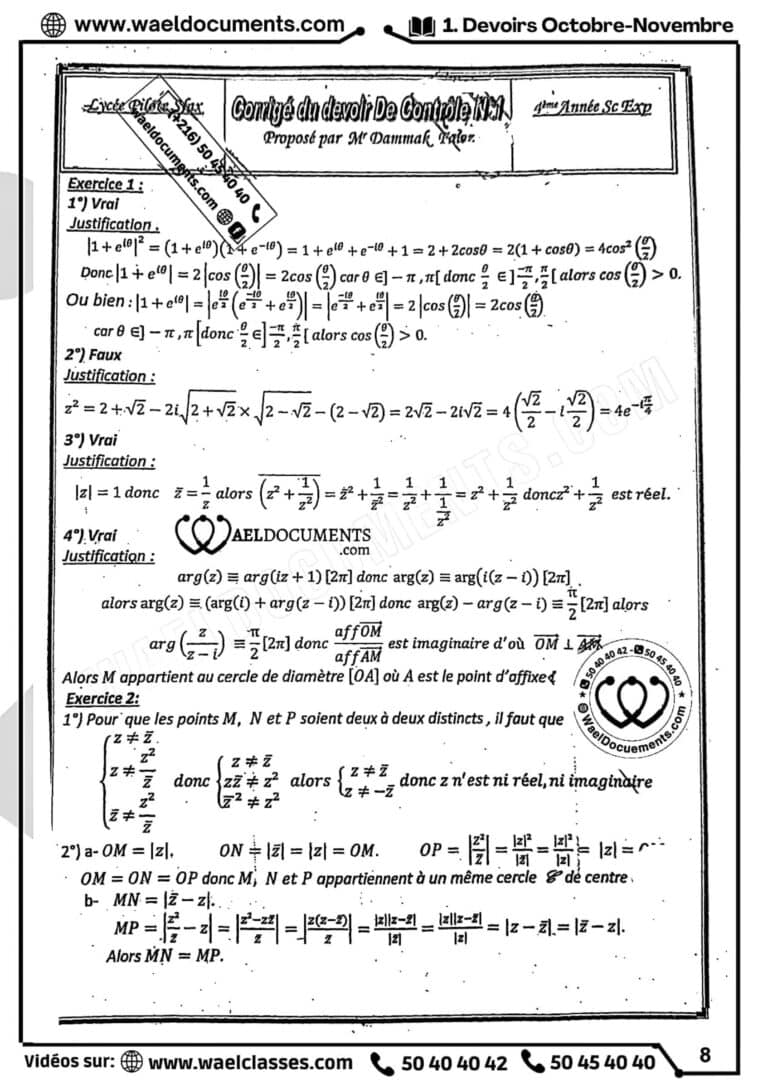 www.waeldocuments.com
1. Devoirs Octobre-Novembre
Lycée Pilote Sfax
Corrigé du devoir De Contrôle N°1
4ème Année Sc Exp
Proposé par Mr Dammak
(+216) 50 45 40 40
waeldocuments.com
Exercice 1 :
1°) Vrai
Justification.
|1 + e^{iθ}|² = (1 + e^{iθ})(1 + e^{-iθ}) = 1 + e^{iθ} + e^{-iθ} + 1 = 2 + 2cosθ = 2(1 + cosθ) = 4cos²(θ/2)
Donc |1 + e^{iθ}| = 2|cos(θ/2)| = 2cos(θ/2) car θ ∈] − π, π[ donc θ/2 ∈]−π/2, π/2[ alors cos(θ/2) > 0.
Ou bien : |1 + e^{iθ}| = |e^{iθ/2}(e^{-iθ/2} + e^{iθ/2})| = |e^{-iθ/2} + e^{iθ/2}| = 2|cos(θ/2)| = 2cos(θ/2)
car θ ∈] − π, π[ donc θ/2 ∈]−π/2, π/2[ alors cos(θ/2) > 0.
2°) Faux
Justification :
z² = 2 + √2 − 2i√(2 + √2) × √(2 − √2) − (2 − √2) = 2√2 − 2i√2 = 4(√2/2 − i√2/2) = 4e^{-iπ/4}
3°) Vrai
Justification :
|z| = 1 donc z̄ = 1/z alors \overline{(z² + 1/z²)} = z̄² + 1/z̄² = 1/z² + 1/(1/z²) = z² + 1/z² donc z² + 1/z² est réel.
4°) Vrai
WAELDOCUMENTS
.com
Justification :
arg(z) ≡ arg(iz + 1) [2π] donc arg(z) ≡ arg(i(z − i)) [2π]
alors arg(z) ≡ (arg(i) + arg(z − i)) [2π] donc arg(z) − arg(z − i) ≡ π/2 [2π] alors
arg(z/(z − i)) ≡ π/2 [2π] donc aff\vec{OM}/aff\vec{AM} est imaginaire d'où \vec{OM} ⊥ \vec{AM}
Alors M appartient au cercle de diamètre [OA] où A est le point d'affixe i
50 40 40 42 - 50 45 40 40
WaelDocuements.com
Exercice 2:
1°) Pour que les points M, N et P soient deux à deux distincts, il faut que
{z ≠ z̄. ; z ≠ z²/z̄ ; z̄ ≠ z²/z̄ donc {z ≠ z̄ ; zz̄ ≠ z² ; z̄² ≠ z² alors {z ≠ z̄ ; z ≠ −z̄ donc z n'est ni réel, ni imaginaire
2°) a- OM = |z|, ON = |z̄| = |z| = OM. OP = |z²/z̄| = |z|²/|z̄| = |z|²/|z| = |z| =
OM = ON = OP donc M, N et P appartiennent à un même cercle 𝒞 de centre
b- MN = |z̄ − z|.
MP = |z²/z̄ − z| = |(z² − zz̄)/z̄| = |z(z − z̄)/z̄| = |z||z − z̄|/|z̄| = |z||z − z̄|/|z| = |z − z̄| = |z̄ − z|.
Alors MN = MP.
Vidéos sur: www.waelclasses.com 50 40 40 42 50 45 40 40
8